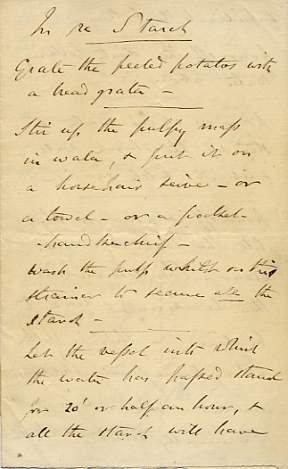 In re Starch
Grate the peeled potatos with
a bread grater —
Stir up the pulpy mass
in water, & put it on
a horsehair seive — or
a towel — or a pocket-
-handkerchief —
wash the pulp whilst on this
strainer to secure all the
starch —
Let the vessel into which
the water has passed stand
for 20' or half an hour, &
all the starch will have